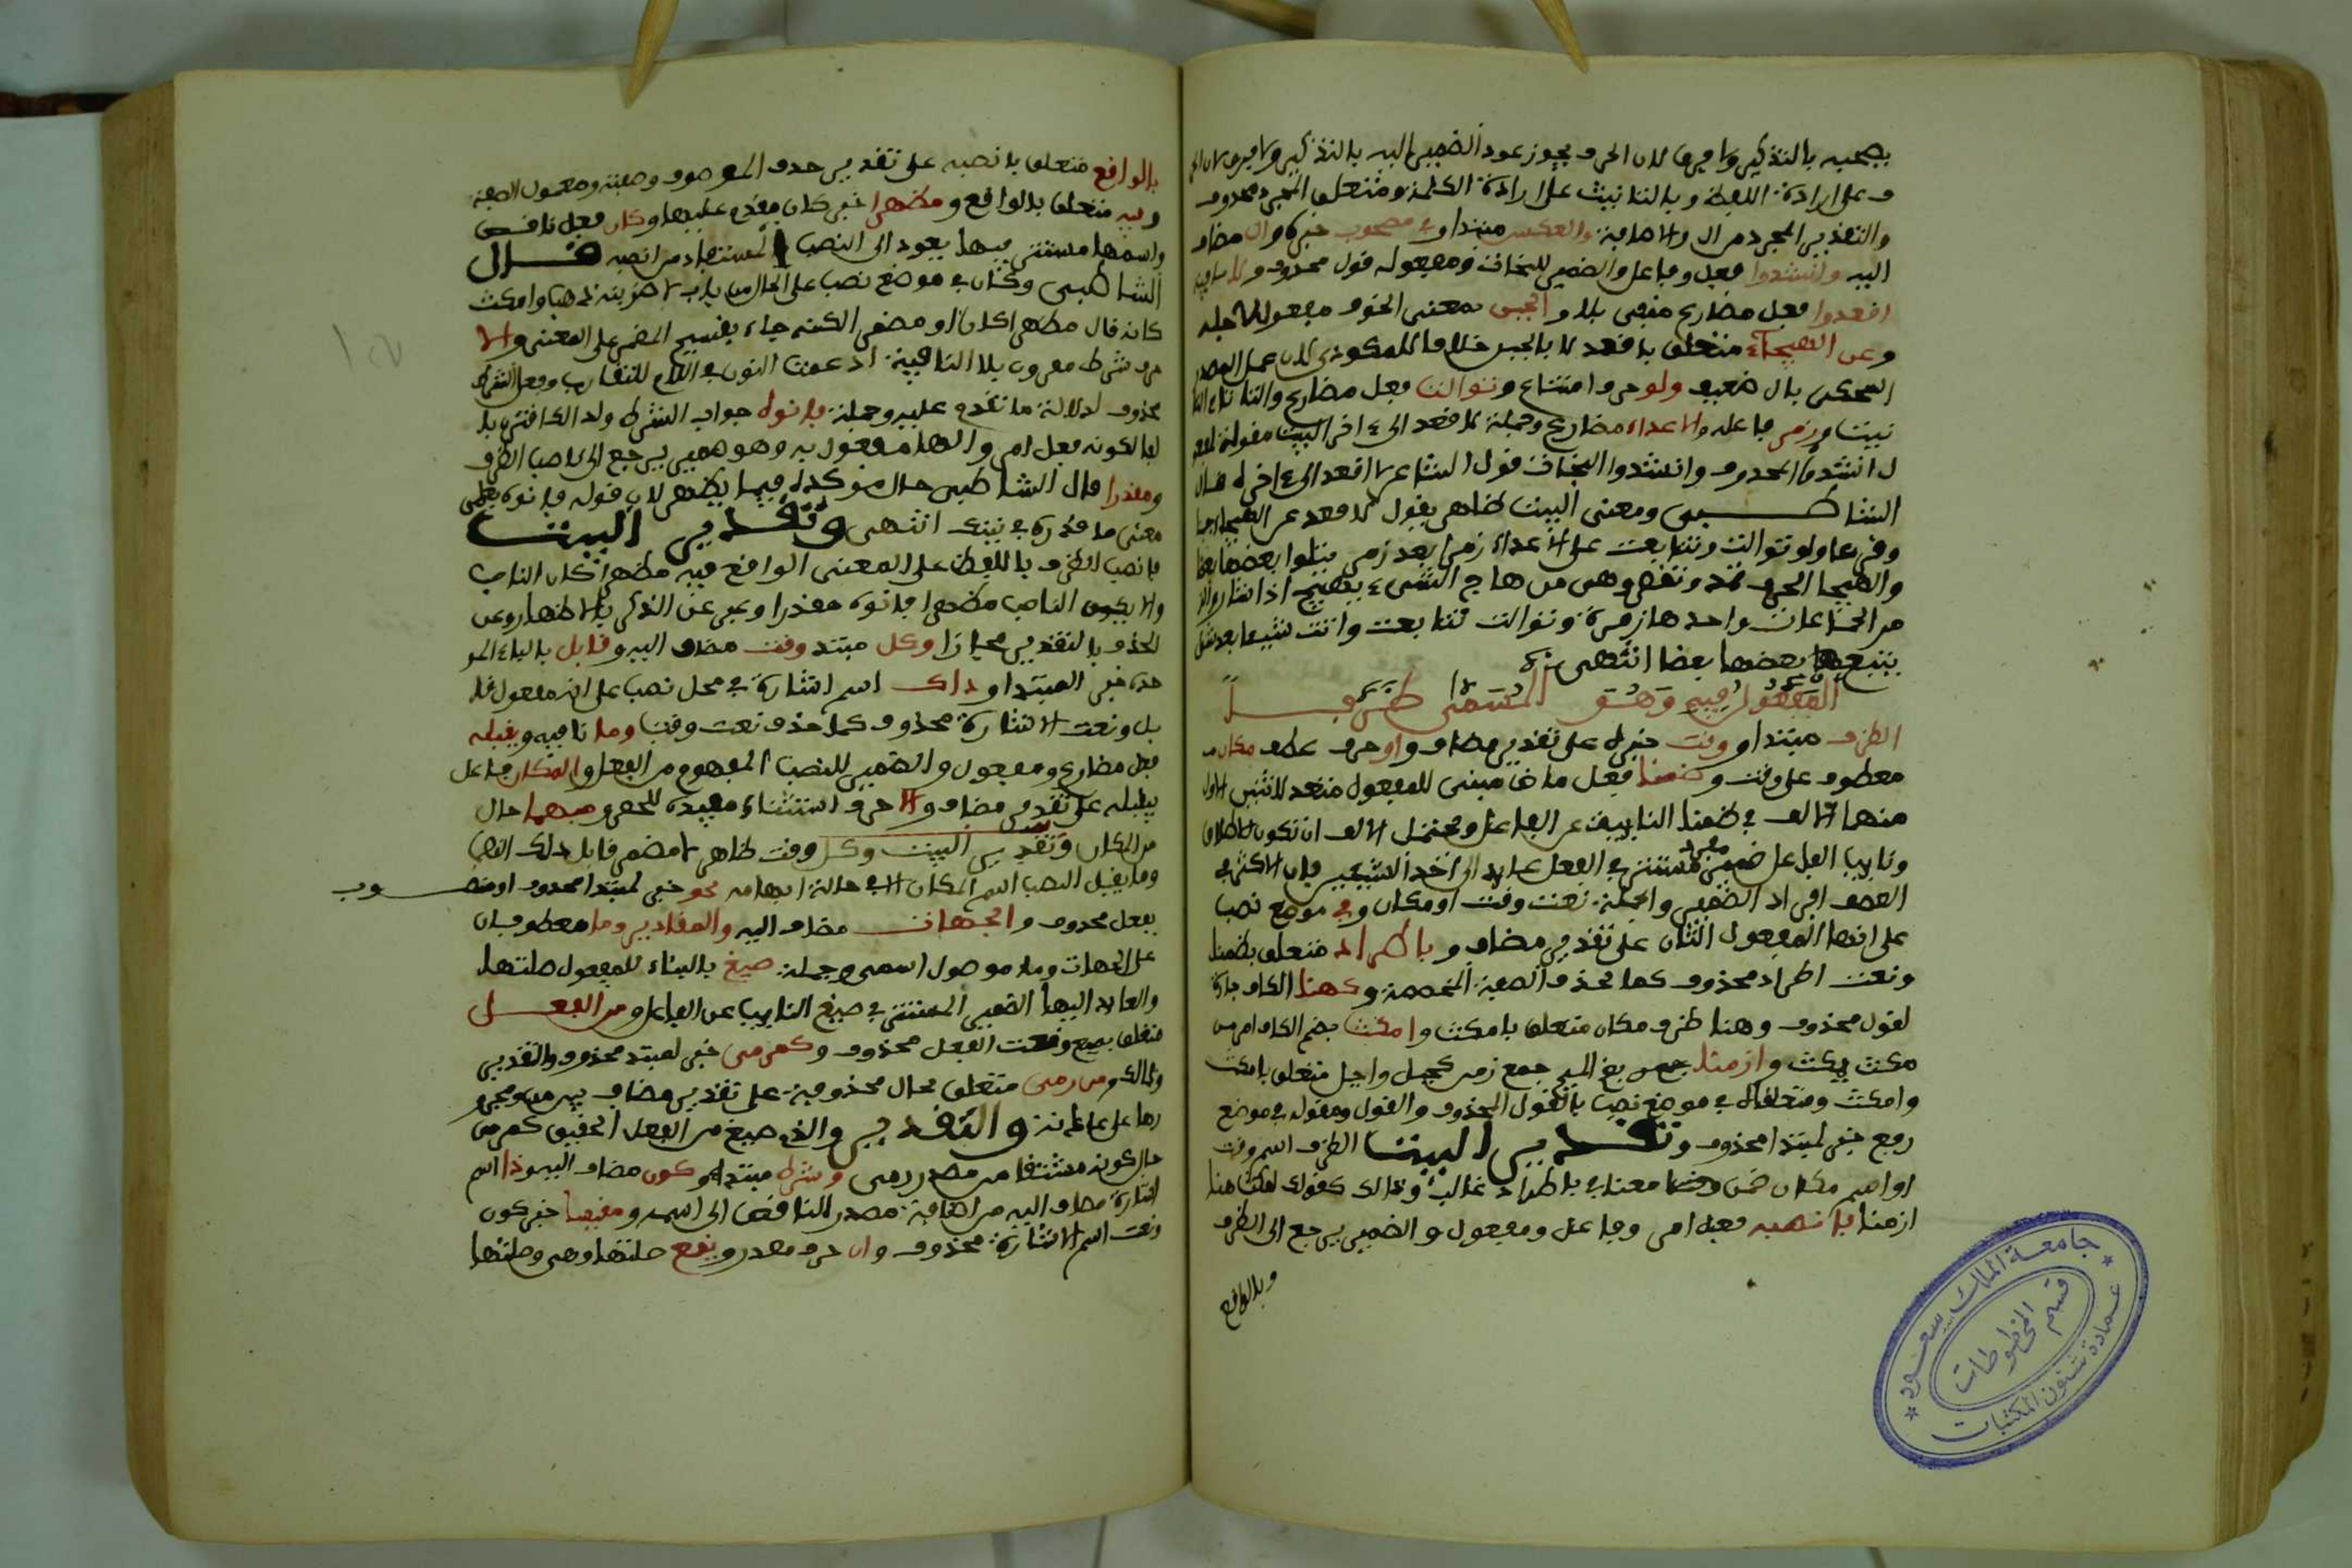 يصحبه بالتذكير ولا فرق لان الحرف يجوز عود الضمير اليه بالتذكير
ف على ارادة اللفظ وبالتانيث على ارادة الكلمة ومتعلق المجرد محذوف
والتقدير المجرد من ال والاضافة والعكس مبتدا وفي مصحوب خبره وال مضاف
اليه وانشدوا فعل وفاعل والضمير للنحاة ومفعوله قول محذوف ولا نافية
اقعدوا فعل مضارع منفي بلا والجبن بمعنى الخوف مفعول لاجله
وعن الهيجاء متعلق باقعد لا بالجبن خلافا للمكودي لان عمل المصدر
المحكى بال ضعيف ولو حرف امتناع وتوالت فعل مضارع والتا تاء التا
نيث وزمر فاعله والاعداء مضاف وجملة لا اقعد الى اخر البيت مقولة لقو
ل انشدوا المحذوف وانشدوا النحاة قول الشاعر لا اقعد الى اخره قال
الشاطبي ومعنى البيت ظاهر يقول لا اقعد عن الهيجاء جبنا
وفزعا ولو توالت وتتابعت على الاعداء زمرا بعد زمر يتلوا بعضها بعضا
والهيجا الحرب تمد وتقصر وهي من هاج الشيء يهيج اذا ثار والزمر
من الجماعات واحدها زمرة وتوالت تتابعت وانت شيئا بعد شيء
يتبع بعضها بعضا انتهى
المفعول فيه وهو المسمى ظرفا
الظرف مبتدا ووقت خبره على تقدير مضاف واو حرف عطف مكان
معطوف على وقت وضمنا فعل ماض مبني للمفعول متعد لاثنين الاول
منهما الالف في ضمنا النايب عن الفاعل ويحتمل الالف ان تكون للاطلاق
ونايب الفاعل ضمير مفرد مستتر في الفعل عايد الى احد الشيئين فان الاكثر في
العطف افراد الضمير والجملة نعت وقت او مكان وفي موضع نصب
على انها المفعول الثان على تقدير مضاف وباطراد متعلق بضمنا
ونعت اطراد محذوف كما تحذف الصفة المخصصة وكهنا الكاف جارة
لقول محذوف وهنا ظرف مكان متعلق بامكث وامكث بضم الكاف امر من
مكث يمكث وازمنا جمع زمن كجبل واجبل متعلق بامكث
وامكث ومتعلقاه في موضع نصب بالقول المحذوف والقول ومقوله في موضع
رفع خبر لمبتدا محذوف وتقدير البيت الظرف اسم وقت
او اسم مكان ضمن معنا في باطراد غالب وذلك كقولك امكث هنا
ازمنا فانصبه فعل امر وفاعل ومفعول والضمير يرجع الى الظرف
وبالواقع
بالواقع متعلق بانصبه على تقدير حذف الموصوف وصفته ومعمول الصفة
وفيه متعلق بالواقع ومظهرا خبر كان مقدم عليها وكان فعل ناقص
واسمها مستتر فيها يعود الى النصب المستفاد من انصبه قال
الشاطبي وكان في موضع نصب على الحال من باب لاضربنه ذهب او مكث
كانه قال مظهرا كان او مضمرا لكنه جاء بقسيم المضمر على المعنى والا
حرف شرط مقرون بلا النافية ادغمت النون في اللام للتقارب وفعل الشرط
محذوف لدلالة ما تقدم عليه وجملة فانوه جواب الشرط ولذا اقترن بال
فا لكونه فعل امر والها مفعول به وهو ضمير يرجع الى ناصب الظرف
ومقدرا قال الشاطبي حال موكدة فيما يظهر لان قوله فانوه يعطي
معنى ما قدره في نيتك انتهى وتقدير البيت
فانصب الظرف باللفظ على المعنى الواقع فيه مظهرا كان الناصب
والا يكون الناصب مظهرا فانوه مقدرا وعبر عن الذكر بالاظهار وعن
الحذف بالتقدير مجازا وكل مبتد وقت مضاف اليه وقابل بالباء المو
حدة خبر المبتدا وذاك اسم اشارة في محل نصب على انه مفعول قا
بل ونعت الاشارة محذوف كما حذف نعت وقت وما نافيه ويقبله
فعل مضارع ومفعول والضمير للنصب المفهوم من الفعل والمكان فاعل
يقبله على تقدير مضاف والا حرف استثناء مفيدة للحصر ومبهما حال
من المكان وتقدير البيت وكل وقت ظاهر لا مضمر قابل ذلك النصب
وما يقبل النصب اسم المكان الا في حالة ابهامه نحو خبر لمبتدا محذوف او منصوب
بفعل محذوف والجهات مضاف اليه والمقادير وما معطوفان
على الجهات وما موصول اسمي وجملة صيغ بالبناء للمفعول صلتها
والعايد اليها الضمير المستتر في صيغ النايب عن الفاعل ومن الفعل
متعلق بصيغ ونعت الفعل محذوف وكمرمى خبر لمبتد محذوف والتقدير
وذلك ومن رمى متعلق بحال محذوفة على تقدير مضاف بين من ومجرو
رها على عاملة والتقدير والذي صيغ من الفعل الحقيق كمرمى
حال كونه مشتقا من مصدر رمى وشرط مبتدا وكون مضاف اليه وذا اسم
اشارة مضاف اليه من اضافة مصدر الناقص الى اسمه ومقيسا خبر كون
ونعت اسم الاشارة محذوف وان حرف مصدر ويقع صلتها وهي وصلتها
جامعة الملك سعود
قسم المخطوطات
عمادة شئون المكتبات